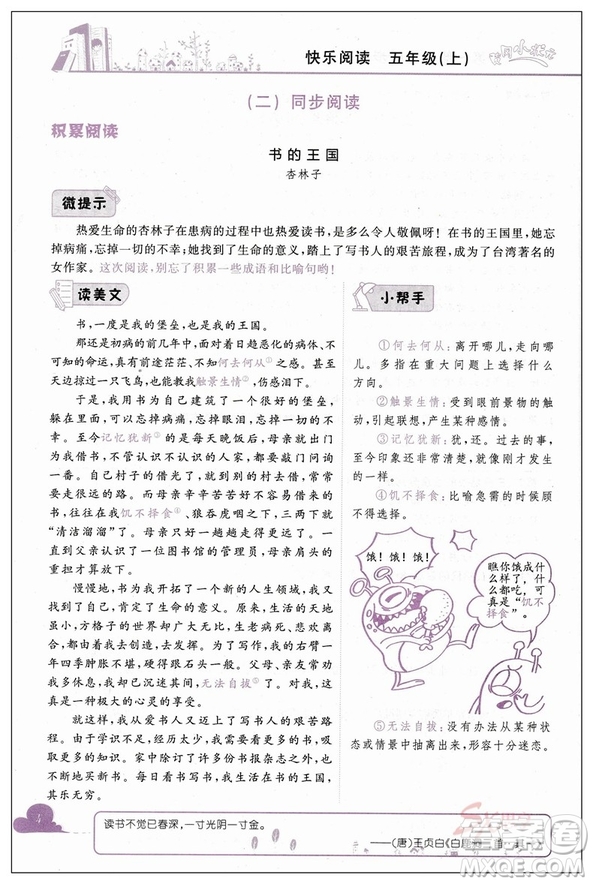 快乐阅读 五年级(上)
(二) 同步阅读
积累阅读
书的王国
杏林子
微提示
热爱生命的杏林子在患病的过程中也热爱读书,是多么令人敬佩呀!在书的王国里,她忘
掉病痛,忘掉一切的不幸;她找到了生命的意义,踏上了写书人的艰苦旅程,成为了台湾著名的
女作家。这次阅读,别忘了积累一些成语和比喻句哟!
读美文
书,一度是我的堡垒,也是我的王国。
那还是初病的前几年,面对着日趋恶化的病体、不
可知的命运,真有前途茫茫、不知何去何从①之感。甚至
天边掠过一只飞鸟,也能让我触景生情②,对之黯然。
于是,我用书本为自己建筑了一个好大好大的堡垒,
躲在里面,可以忘掉病痛,忘掉眼泪,忘掉一切的不
幸。至今记忆犹新③的是,每天晚饭后,母亲亲自出门
为我借书,不管认识不认识的人家,都要敲门问询一
番。自己村子的借光了,就到邻村去借,也不知跑了多
少冤枉路。而母亲辛辛苦苦借来的书,往往不够我几天
囫囵,往往在我饥不择食④、狼吞虎咽的吃相中,三两下就
“清洁溜溜”了。母亲只好一趟趟再去奔走。一
直到父亲认识了一位图书馆的管理员,母亲肩头的
重担才算放下。
慢慢地,书为我开拓了一个新的人生领域,我又找
到了生命的意义。原来,生活的天地
虽小,方格子的世界却广大无边;生老病死、悲欢离
合由我去创造,去发挥。尽管为了写作,我的右臂一
年四季肿胀不堪,硬得跟石头一般。父母亲为我担
忧,我却已沉迷,无法自拔⑤了。对我而言,这真
是一种极大的心灵的享受。
就这样,我从爱书人踏上了写书人的艰苦路程。
由于学识不足,经历太少,我不得不借助书本获取
更多的知识。家中除订了许多书报杂志之外,我还
买了不少书。每日看书写书,生活在书的王国,其
其乐无穷。
小帮手
①何去何从:离开哪儿,走向哪
儿。多指在重大问题上选择什么
方向。
②触景生情:受到眼前景物的触
动,引起联想,产生某种感情。
③记忆犹新:犹,还。过去的事,
至今印象还非常清楚,就像刚才发生
的一样。
④饥不择食:比喻急需的时候顾
不得选择。
饿!饿!
饿!
瞧你饿成
什么样了!
都吃,可
真是“饥不
择食”!
⑤无法自拔:没有办法从某种状
态或情景中脱离出来,形容十分迷恋。
读书不觉已春深,一寸光阴一寸金。
——(唐)王贞白